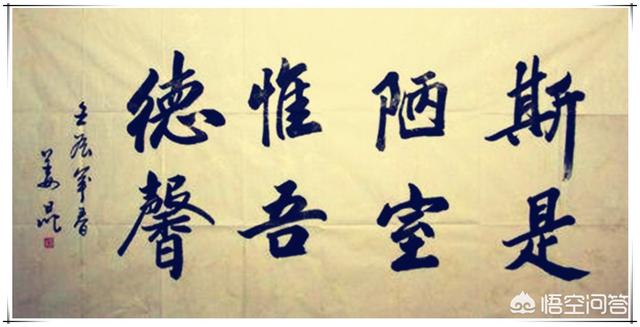 斯是
陋室
惟吾
德馨
壬辰年春
姜昆
悟空问答